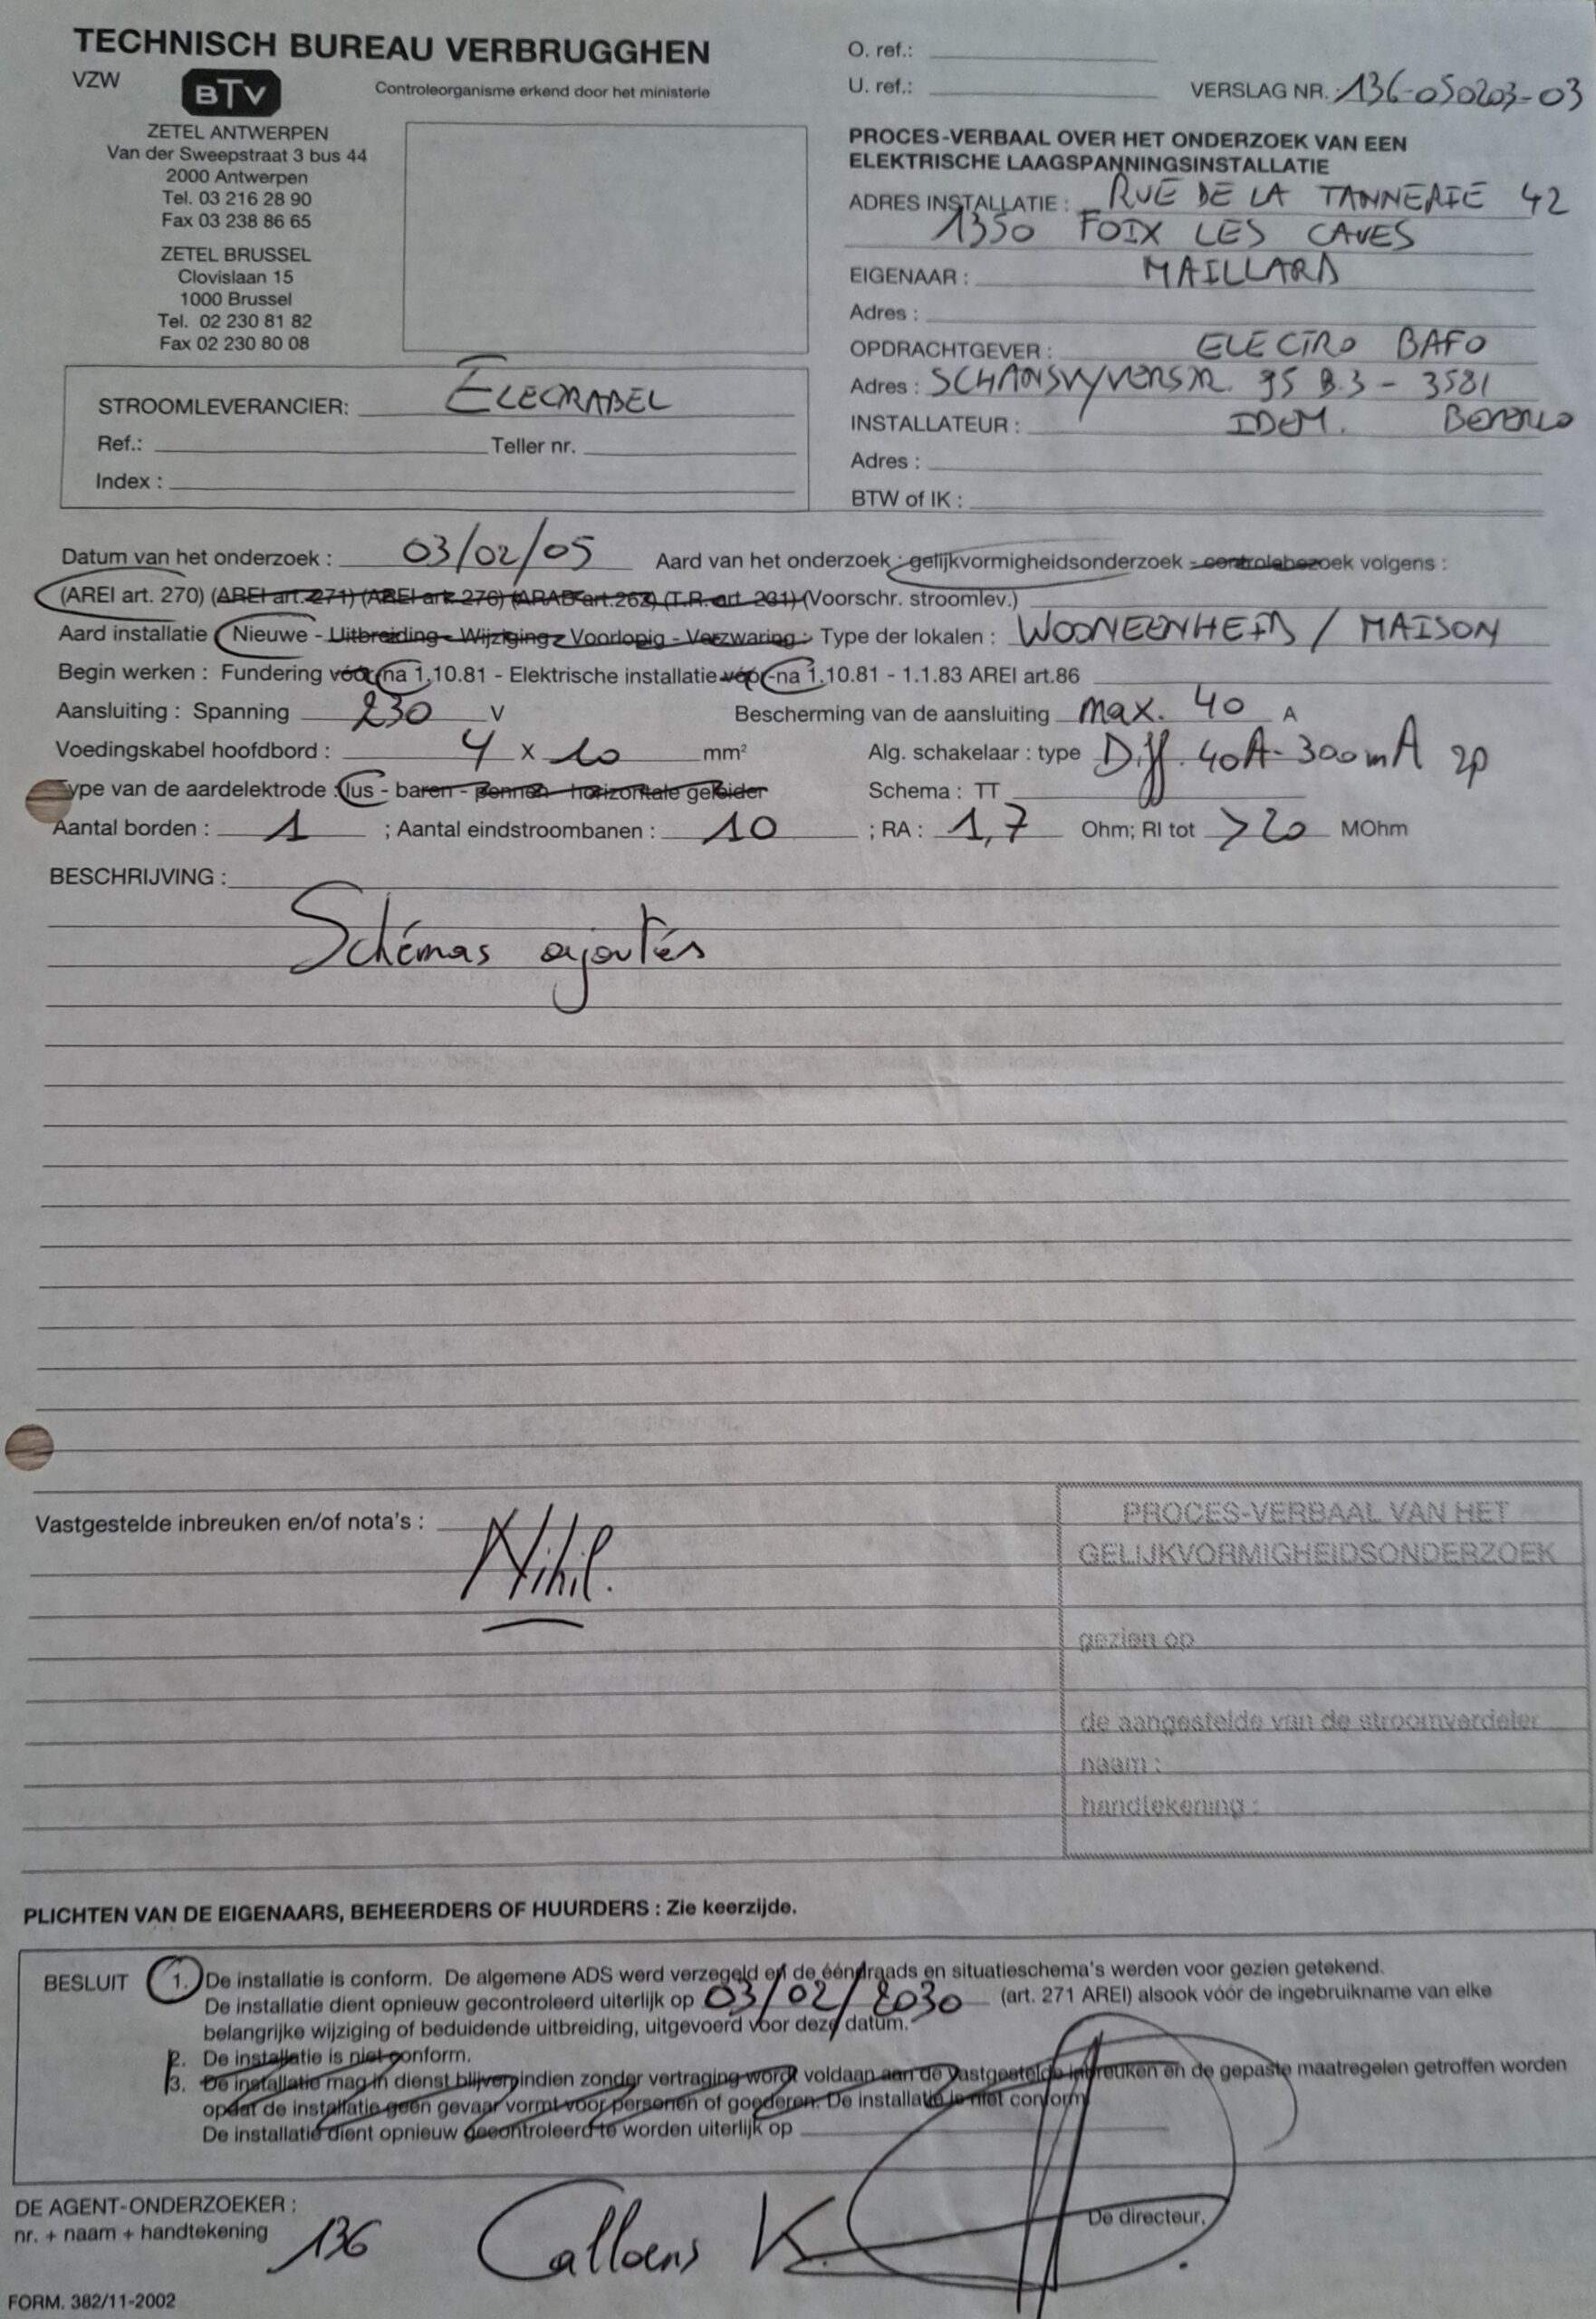 TECHNISCH BUREAU VERBRUGGHEN
VZW
BTV
Controleorganisme erkend door het ministerie
ZETEL ANTWERPEN
Van der Sweepstraat 3 bus 44
2000 Antwerpen
Tel. 03 216 28 90
Fax 03 238 86 65
ZETEL BRUSSEL
Clovislaan 15
1000 Brussel
Tel. 02 230 81 82
Fax 02 230 80 08
O. ref.:
U. ref.:
VERSLAG NR. : 136-050203-03
PROCES-VERBAAL OVER HET ONDERZOEK VAN EEN
ELEKTRISCHE LAAGSPANNINGSINSTALLATIE
ADRES INSTALLATIE : RUE DE LA TANNERIE 42
1350 FOIX LES CAVES
EIGENAAR : MAILLARD
Adres :
OPDRACHTGEVER : ELECTRO BAFO
Adres : SCHANSVYVERSTR. 95 B.3 - 3581
INSTALLATEUR : IDEM. BEVERLO
Adres :
BTW of IK :
STROOMLEVERANCIER: ELECTRABEL
Ref.: Teller nr.
Index :
Datum van het onderzoek : 03/02/05 Aard van het onderzoek : gelijkvormigheidsonderzoek - controlebezoek volgens :
(AREI art. 270) (AREI art. 271) (AREI art. 276) (ARAB art.262) (T.R. art. 261) (Voorschr. stroomlev.)
Aard installatie Nieuwe - Uitbreiding - Wijziging - Voorlopig - Verzwaring : Type der lokalen : WOONEENHEID / MAISON
Begin werken : Fundering vóór-na 1.10.81 - Elektrische installatie vóór-na 1.10.81 - 1.1.83 AREI art.86
Aansluiting : Spanning 230 V Bescherming van de aansluiting max. 40 A
Voedingskabel hoofdbord : 4 x 10 mm² Alg. schakelaar : type Diff. 40A - 300mA 2p
Type van de aardelektrode : lus - baren - pennen - horizontale geleider Schema : TT
Aantal borden : 1 ; Aantal eindstroombanen : 10 ; RA : 1,7 Ohm; RI tot >20 MOhm
BESCHRIJVING :
Schémas ajoutés
Vastgestelde inbreuken en/of nota's :
Nihil.
PROCES-VERBAAL VAN HET
GELIJKVORMIGHEIDSONDERZOEK
gezien op
de aangestelde van de stroomverdeler
naam :
handtekening :
PLICHTEN VAN DE EIGENAARS, BEHEERDERS OF HUURDERS : Zie keerzijde.
BESLUIT 1. De installatie is conform. De algemene ADS werd verzegeld en de ééndraads en situatieschema's werden voor gezien getekend.
De installatie dient opnieuw gecontroleerd uiterlijk op 03/02/2030 (art. 271 AREI) alsook vóór de ingebruikname van elke
belangrijke wijziging of beduidende uitbreiding, uitgevoerd voor deze datum.
2. De installatie is niet conform.
3. De installatie mag in dienst blijven indien zonder vertraging wordt voldaan aan de vastgestelde inbreuken en de gepaste maatregelen getroffen worden
opdat de installatie geen gevaar vormt voor personen of goederen. De installatie is niet conform
De installatie dient opnieuw gecontroleerd te worden uiterlijk op
DE AGENT-ONDERZOEKER :
nr. + naam + handtekening 136 Calloens K.
De directeur,
FORM. 382/11-2002